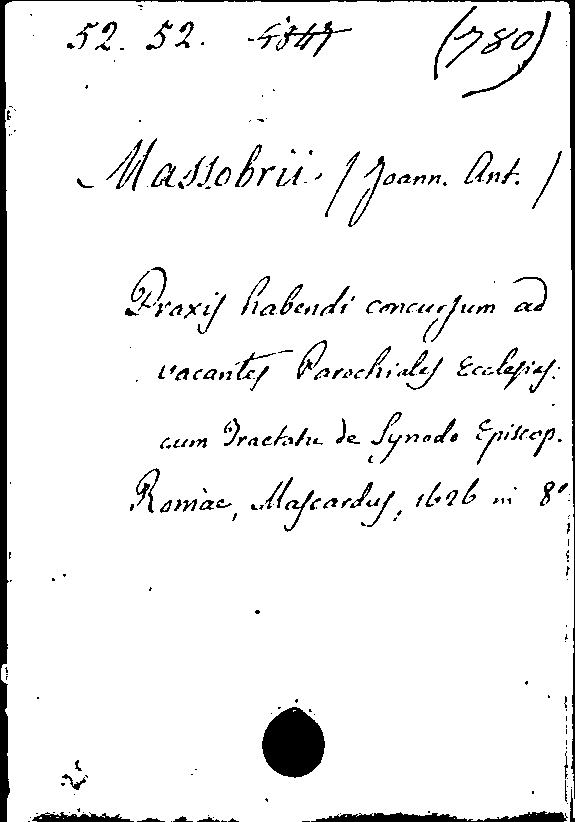 52. 52. 4847 (780)
Massobrii. / Joann. Ant. /
Praxis habendi concursum ad
vacantes Parochiales Ecclesias.
cum Tractatu de Synodo Episcop.
Romae, Mascardus, 1626 in 8°